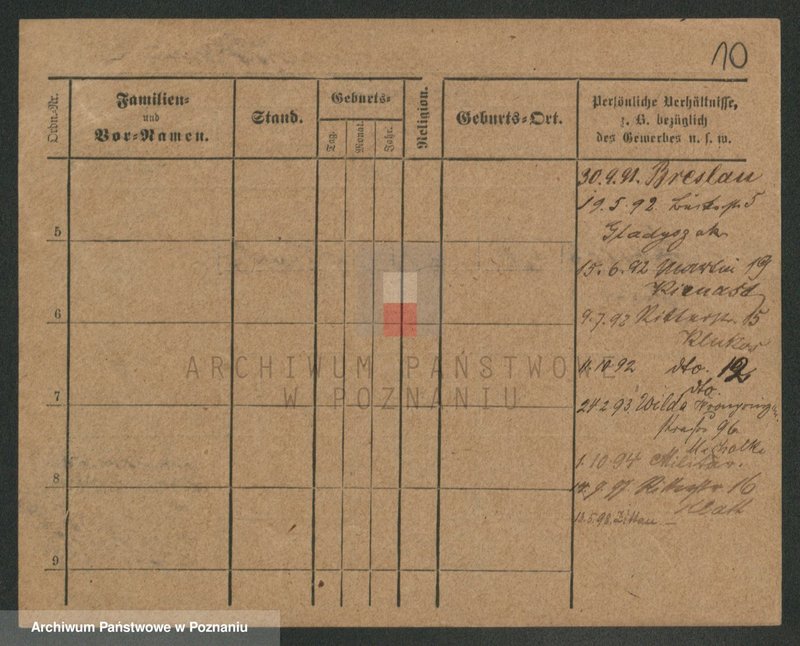 10
Ordn.-Nr.
Familien-
und
Vor-Namen.
Stand.
Geburts-
Tag.
Monat.
Jahr.
Religion.
Geburts-Ort.
Persönliche Verhältnisse,
z. B. bezüglich
des Gewerbes u. s. w.
30.9.91. Breslau
19.5.92.
Gladyszak
5
15.6.92 Martin 19
Kienast
6
9.7.92 Ritterstr. 15
Klukos
11.10.92 dto. 12
dto.
7
24.2.93. Wilda Kronprinzen
straße 96
1.10.94 Militär.
8
14.9.97. Ritterstr 16
13.5.98. Zittau
9
ARCHIWUM PAŃSTWOWE
W POZNANIU
Archiwum Państwowe w Poznaniu